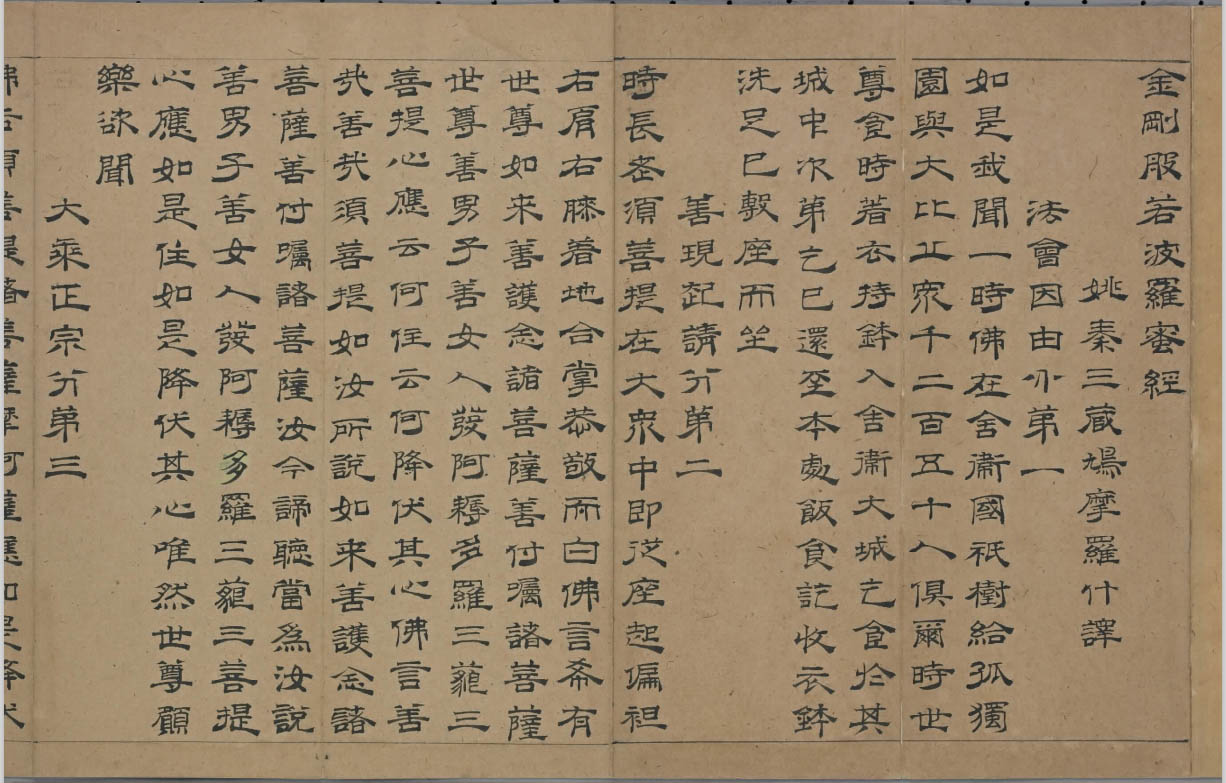 金剛般若波羅蜜經
姚秦三藏鳩摩羅什譯
法會因由分第一
如是我聞一時佛在舍衞國祇樹給孤獨
園與大比丘眾千二百五十人俱爾時世
尊食時著衣持鉢入舍衞大城乞食於其
城中次第乞已還至本處飯食訖收衣鉢
洗足已敷座而坐
善現起請分第二
時長老須菩提在大眾中即從座起偏袒
右肩右膝着地合掌恭敬而白佛言希有
世尊如来善護念諸菩薩善付囑諸菩薩
世尊善男子善女人發阿耨多羅三藐三
菩提心應云何住云何降伏其心佛言善
哉善哉須菩提如汝所說如来善護念諸
菩薩善付囑諸菩薩汝今諦聽當為汝說
善男子善女人發阿耨多羅三藐三菩提
心應如是住如是降伏其心唯然世尊願
樂欲聞
大乘正宗分第三
佛告須菩提諸菩薩摩訶薩應如是降伏